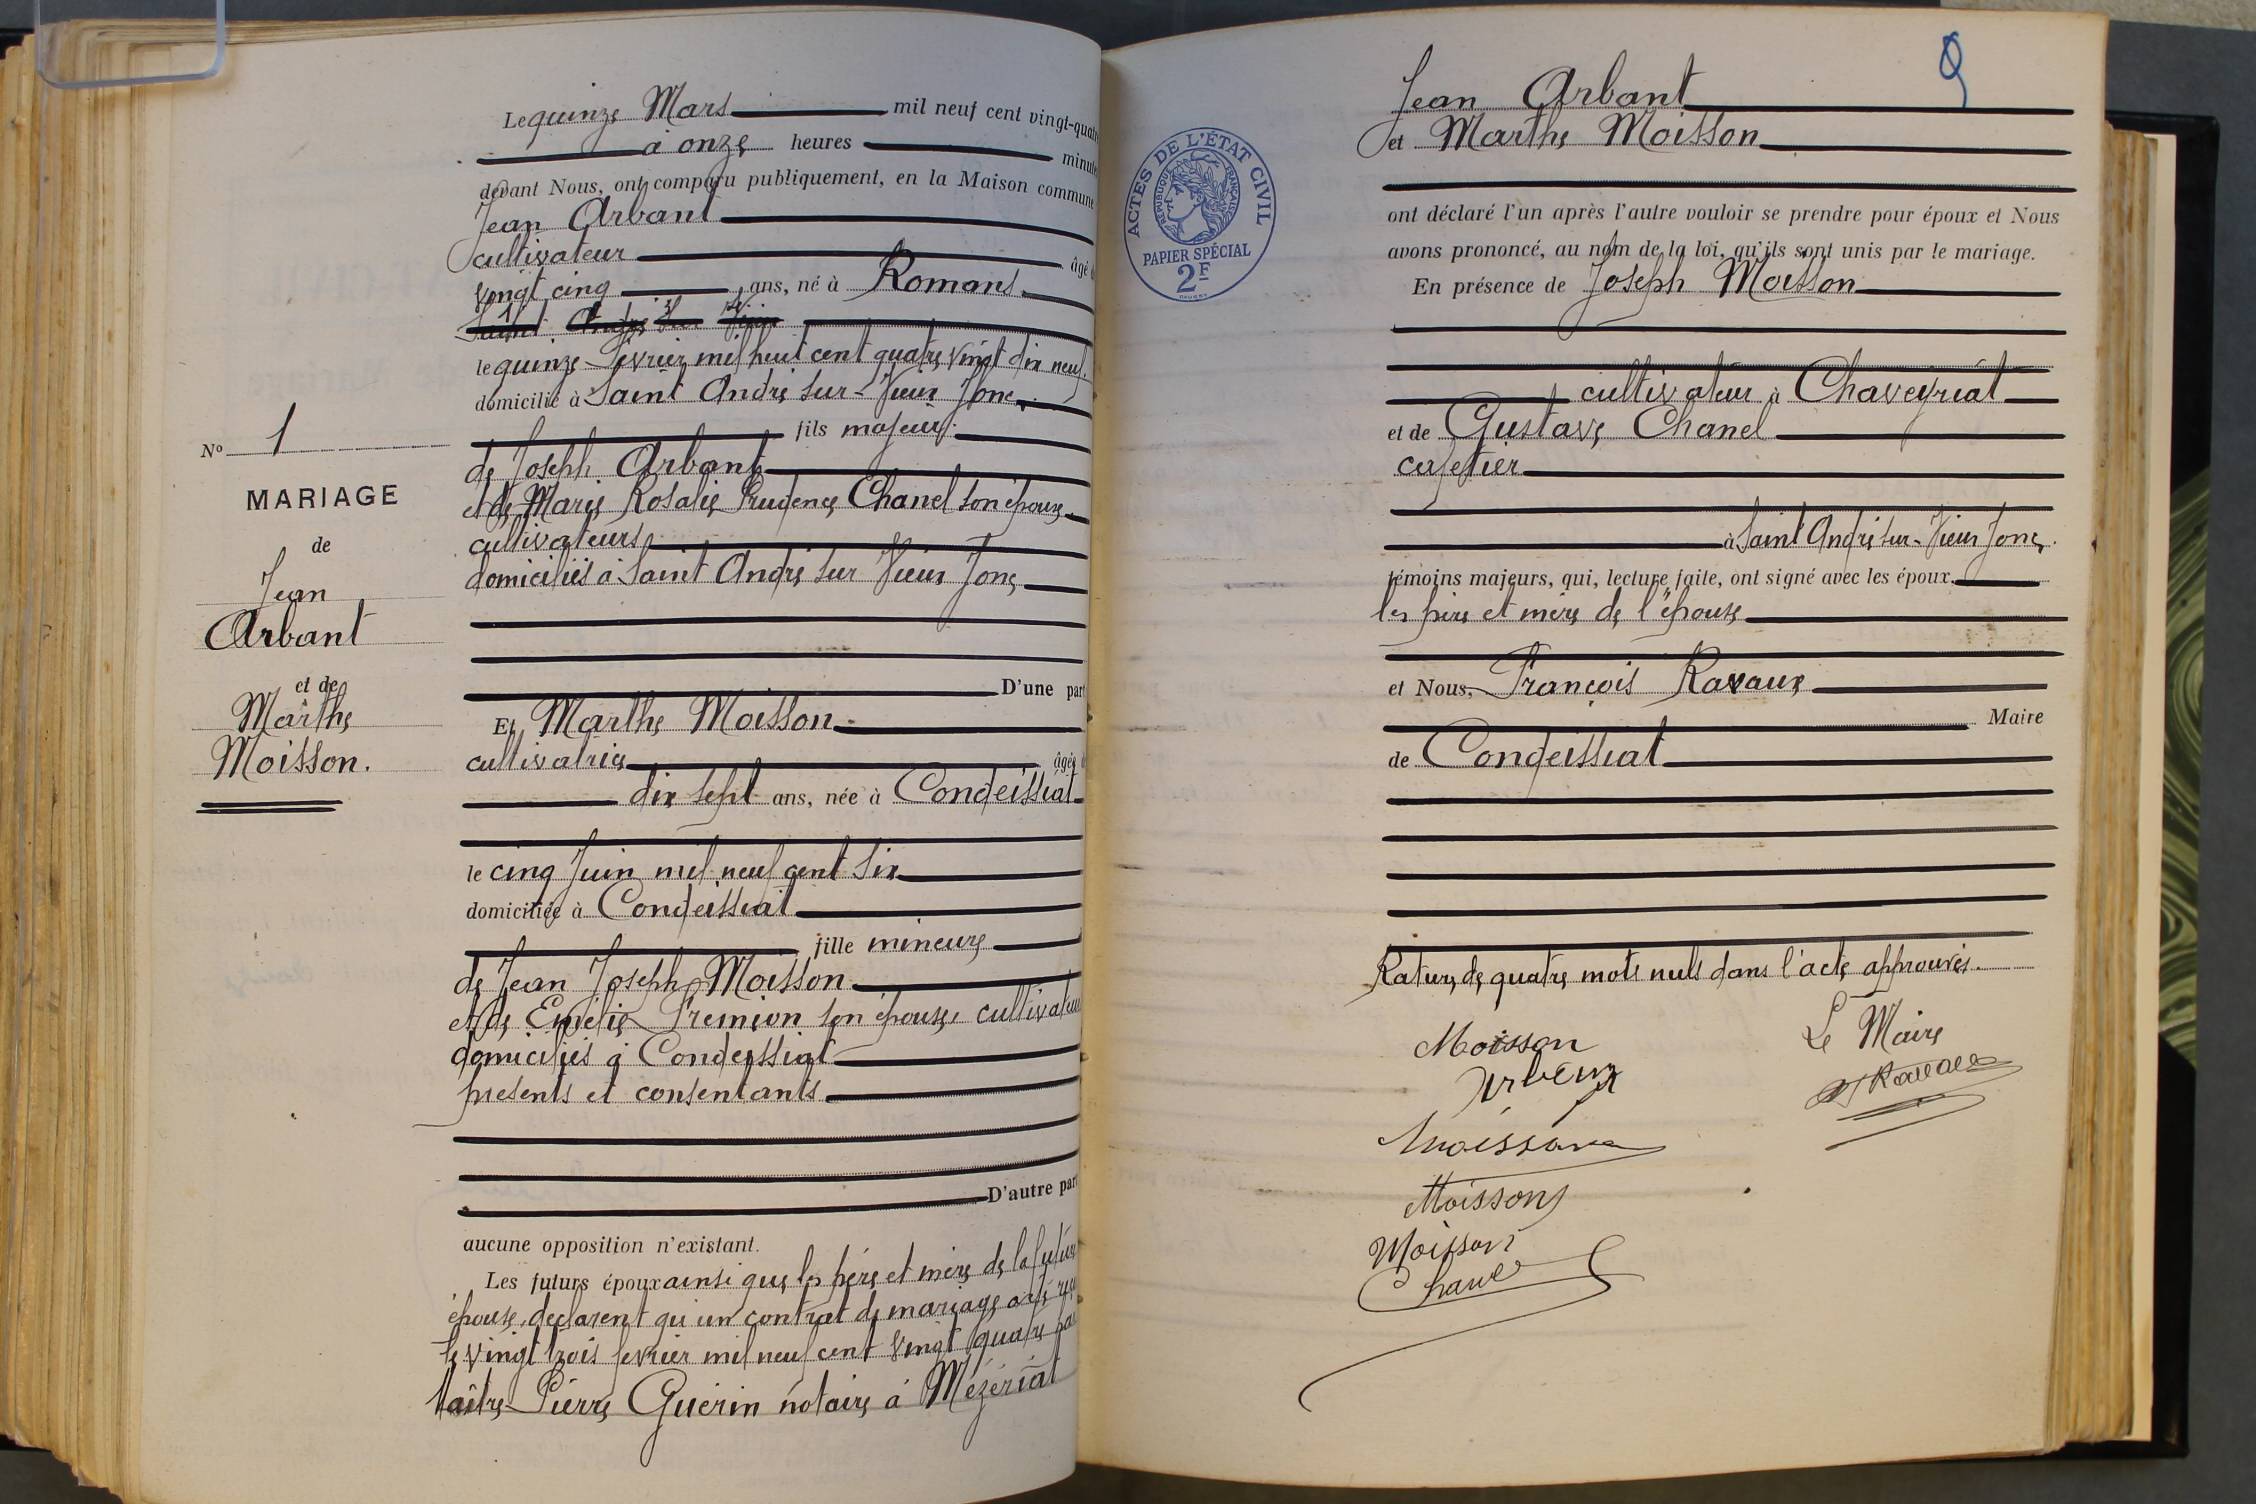 Le quinze Mars mil neuf cent vingt-quatre
à onze heures minutes
devant Nous, ont comparu publiquement, en la Maison commune
Jean Arbant
cultivateur âgé
vingt cinq ans, né à Romans.
Saint André sur Vieux
le quinze février mil huit cent quatre vingt dix neuf.
domicilié à Saint André sur-Vieux Jonc,
fils majeur.
de Joseph Arbant
et de Marie Rosalie Prudence Chanel son épouse
cultivateurs
domiciliés à Saint André sur Vieux Jonc
D'une part
Et Marthe Moisson
cultivatrice âgée
dix sept ans, née à Condeissiat
le cinq Juin mil neuf cent six
domiciliée à Condeissiat
fille mineure
de Jean Joseph Moisson
et de Emélie Fremion son épouse cultivateurs
domiciliés à Condeissiat
présents et consentants
D'autre part
aucune opposition n'existant.
Les futurs époux ainsi que les père et mère de la future
épouse, déclarent qu'un contrat de mariage a été reçu
le vingt trois février mil neuf cent vingt quatre par
Maître Pierre Guérin notaire à Mézériat
No 1
MARIAGE
de
Jean
Arbant
et de
Marthe
Moisson.
ACTES DE L'ÉTAT CIVIL
RÉPUBLIQUE FRANÇAISE
PAPIER SPÉCIAL
2F
Jean Arbant
et Marthe Moisson
ont déclaré l'un après l'autre vouloir se prendre pour époux et Nous
avons prononcé, au nom de la loi, qu'ils sont unis par le mariage.
En présence de Joseph Moisson
cultivateur à Chaveyriat
et de Gustave Chanel
cafetier
à Saint André sur-Vieux Jonc.
témoins majeurs, qui, lecture faite, ont signé avec les époux.
les père et mère de l'épouse
et Nous, François Ravaux
Maire
de Condeissiat
Rature de quatre mots nuls dans l'acte approuvés.
Moisson
Le Maire
Ravaux
Moisson
Moisson
Moisson
Chanel